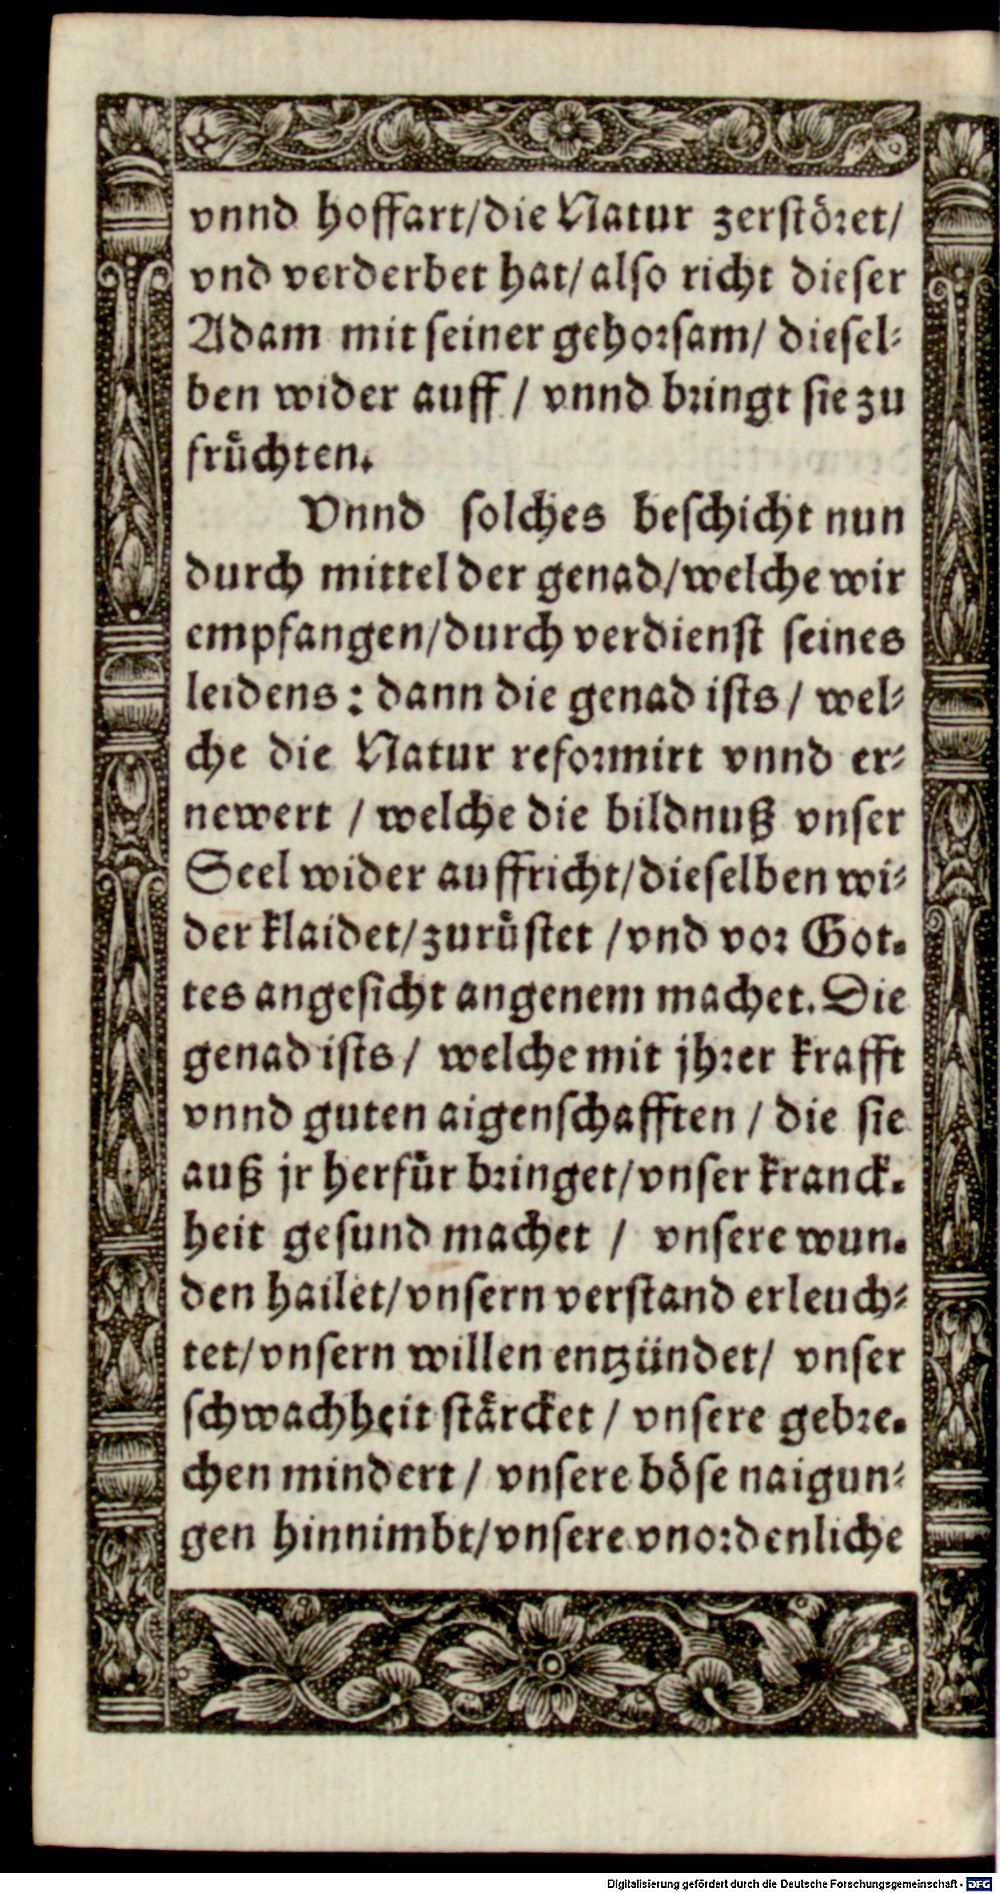 vnnd hoffart/die Natur zerstöret/
vnd verderbet hat/also richt dieser
Adam mit seiner gehorsam/ diesel-
ben wider auff / vnnd bringt sie zu
früchten.
Vnnd solches beschicht nun
durch mittel der genad/welche wir
empfangen/durch verdienst seines
leidens: dann die genad ists / wel-
che die Natur reformirt vnnd er-
newert / welche die bildnuß vnser
Seel wider auffricht/dieselben wi-
der klaidet/zurüstet /vnd vor Got-
tes angesicht angenem machet. Die
genad ists / welche mit jhrer krafft
vnnd guten aigenschafften / die sie
auß jr herfür bringet/vnser kranck-
heit gesund machet / vnsere wun-
den hailet/vnsern verstand erleuch-
tet/vnsern willen entzündet/ vnser
schwachheit stärcket / vnsere gebre-
chen mindert / vnsere böse naigun-
gen hinnimbt/vnsere vnordenliche
Digitalisierung gefördert durch die Deutsche Forschungsgemeinschaft - DFG